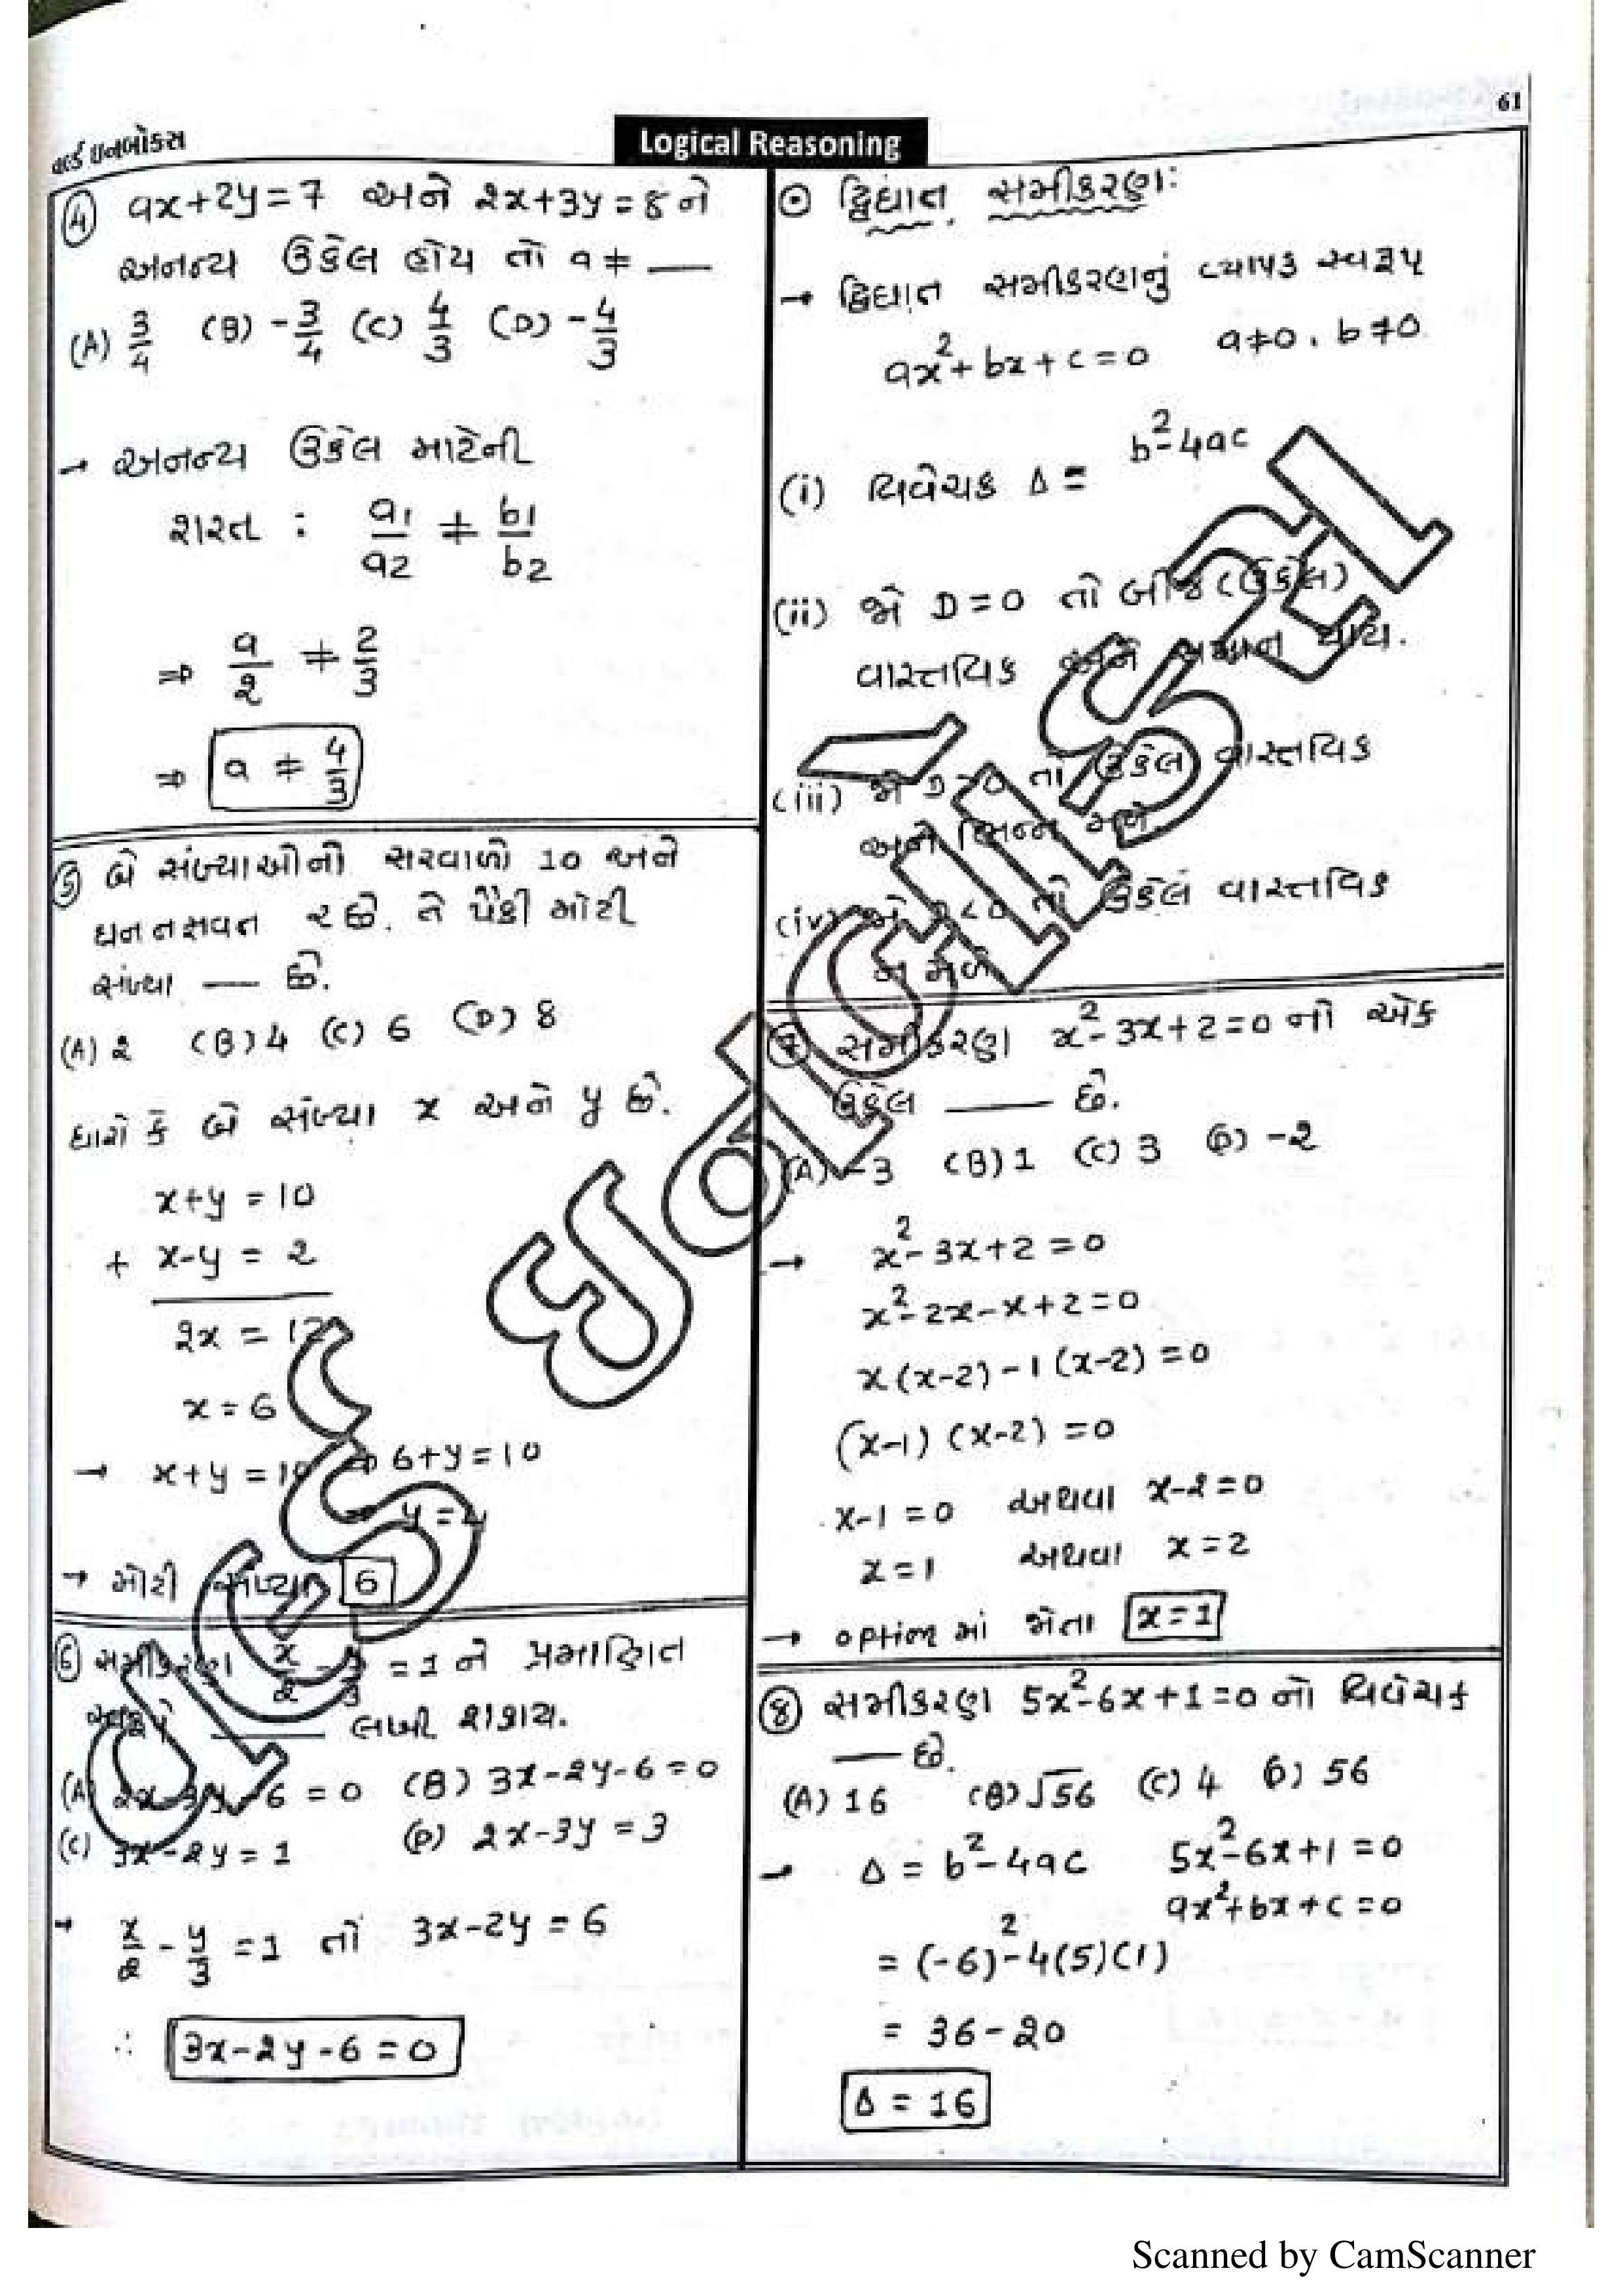 વર્લ્ડ ઇનબોક્સ
Logical Reasoning
61
④ ax+2y=7 અને 2x+3y=8 ને
અનન્ય ઉકેલ હોય તો a ≠ —
(A) 3/4 (B) -3/4 (C) 4/3 (D) -4/3
→ અનન્ય ઉકેલ માટેની
શરત : a1/a2 ≠ b1/b2
⇒ a/2 ≠ 2/3
⇒ a ≠ 4/3
⑤ બે સંખ્યાઓનો સરવાળો 10 અને
ધન તફાવત 2 છે. તે પૈકી મોટી
સંખ્યા — છે.
(A) 2 (B) 4 (C) 6 (D) 8
ધારો કે બે સંખ્યા x અને y છે.
x+y = 10
+ x-y = 2
2x = 12
x = 6
→ x+y = 10 ⇒ 6+y = 10
⇒ y = 4
→ મોટી સંખ્યા 6
⑥ સમીકરણ x/2 - y/3 = 1 ને પ્રમાણિત
સ્વરૂપે —— લખી શકાય.
(A) 2x-3y-6 = 0 (B) 3x-2y-6 = 0
(C) 3x-2y = 1 (D) 2x-3y = 3
→ x/2 - y/3 = 1 તો 3x-2y = 6
∴ 3x-2y-6 = 0
⊙ દ્વિઘાત સમીકરણ:
→ દ્વિઘાત સમીકરણનું વ્યાપક સ્વરૂપ
ax²+bx+c=0 a≠0, b≠0
(i) વિવેચક Δ = b²-4ac
(ii) જો D=0 તો બીજ (ઉકેલ)
વાસ્તવિક અને સમાન થાય.
(iii) જો D>0 તો ઉકેલ વાસ્તવિક
અને ભિન્ન મળે.
(iv) જો D<0 તો ઉકેલ વાસ્તવિક
ન મળે
⑦ સમીકરણ x²-3x+2=0 નો એક
ઉકેલ —— છે.
(A) -3 (B) 1 (C) 3 (D) -2
→ x²-3x+2=0
x²-2x-x+2=0
x(x-2)-1(x-2)=0
(x-1)(x-2)=0
x-1=0 અથવા x-2=0
x=1 અથવા x=2
→ option માં જોતા x=1
⑧ સમીકરણ 5x²-6x+1=0 નો વિવેચક
—— છે.
(A) 16 (B) √56 (C) 4 (D) 56
→ Δ = b²-4ac 5x²-6x+1=0
ax²+bx+c=0
= (-6)²-4(5)(1)
= 36-20
Δ = 16
Scanned by CamScanner